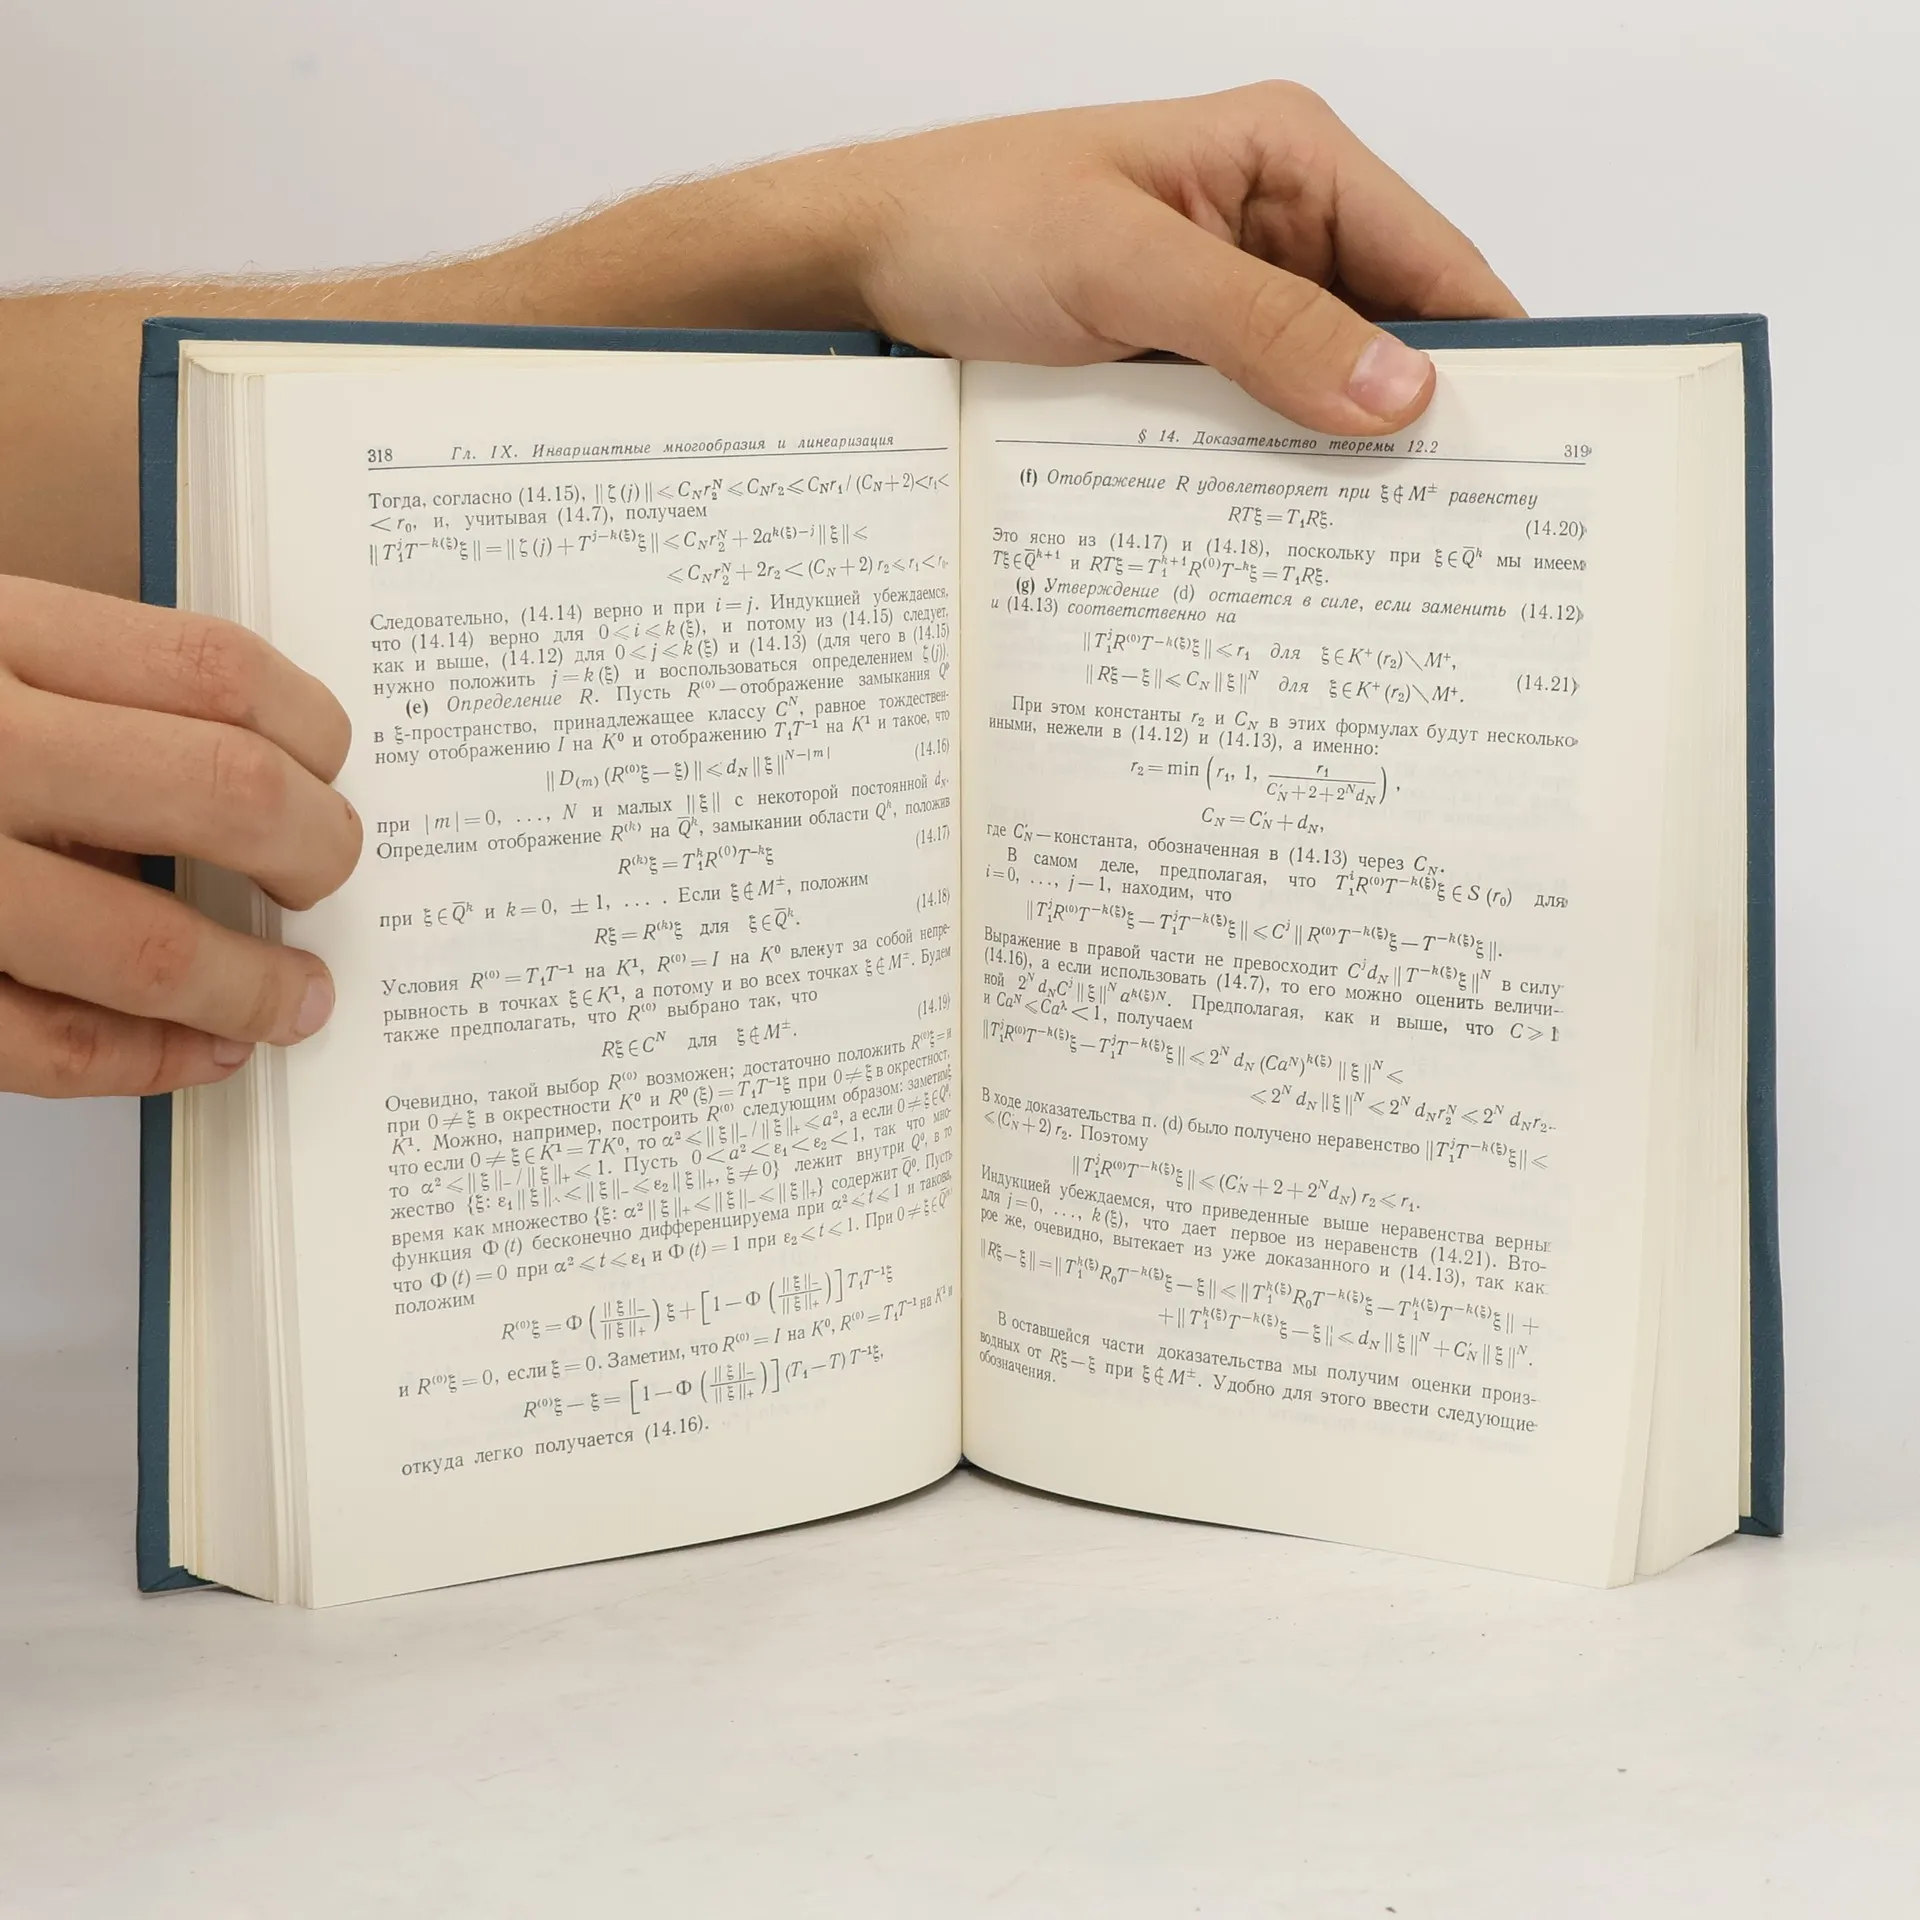 318 Гл. IX. Инвариантные многообразия и линеаризация
Тогда, согласно (14.15), ||ζ(j)|| ⩽ C_N r_2^N ⩽ C_N r_2 ⩽ C_N r_1/(C_N+2) < r_1 <
< r_0, и, учитывая (14.7), получаем
||T_1^j T^{-k(ξ)}ξ|| = ||ζ(j) + T^{j-k(ξ)}ξ|| ⩽ C_N r_2^N + 2a^{k(ξ)-j}||ξ|| ⩽
⩽ C_N r_2^N + 2r_2 < (C_N+2) r_2 ⩽ r_1 < r_0.
Следовательно, (14.14) верно и при i=j. Индукцией убеждаемся,
что (14.14) верно для 0⩽i⩽k(ξ), и потому из (14.15) следует,
как и выше, (14.12) для 0⩽j⩽k(ξ) и (14.13) (для чего в (14.15)
нужно положить j=k(ξ) и воспользоваться определением ζ(j)).
(e) Определение R. Пусть R^{(0)} — отображение замыкания Q^0
в ξ-пространство, принадлежащее классу C^N, равное тождествен-
ному отображению I на K^0 и отображению T_1T^{-1} на K^1 и такое, что
||D_{(m)}(R^{(0)}ξ — ξ)|| ⩽ d_N||ξ||^{N-|m|} (14.16)
при |m|=0, ..., N и малых ||ξ|| с некоторой постоянной d_N.
Определим отображение R^{(k)} на Q̄^k, замыкании области Q^k, положив
R^{(k)}ξ = T_1^k R^{(0)}T^{-k}ξ (14.17)
при ξ∈Q̄^k и k=0, ±1, ... . Если ξ∉M^±, положим
Rξ = R^{(k)}ξ для ξ∈Q̄^k. (14.18)
Условия R^{(0)}=T_1T^{-1} на K^1, R^{(0)}=I на K^0 влекут за собой непре-
рывность в точках ξ∈K^1, а потому и во всех точках ξ∉M^±. Будем
также предполагать, что R^{(0)} выбрано так, что
Rξ∈C^N для ξ∉M^±. (14.19)
Очевидно, такой выбор R^{(0)} возможен; достаточно положить R^{(0)}ξ=ξ
при 0≠ξ в окрестности K^0 и R^0(ξ)=T_1T^{-1}ξ при 0≠ξ в окрестност.
K^1. Можно, например, построить R^{(0)} следующим образом: заметим,
что если 0≠ξ∈K^1=TK^0, то α^2⩽||ξ||_-/||ξ||_+⩽a^2, а если 0≠ξ∈Q^0,
то α^2⩽||ξ||_-/||ξ||_+⩽1. Пусть 0<a^2<ε_1<ε_2<1, так что мно-
жество {ξ: ε_1||ξ||_+⩽||ξ||_-⩽ε_2||ξ||_+, ξ≠0} лежит внутри Q^0, в то
время как множество {ξ: α^2||ξ||_+⩽||ξ||_-⩽||ξ||_+} содержит Q̄^0. Пусть
функция Φ(t) бесконечно дифференцируема при α^2⩽t⩽1 и такова,
что Φ(t)=0 при α^2⩽t⩽ε_1 и Φ(t)=1 при ε_2⩽t⩽1. При 0≠ξ∈Q̄^0
положим
R^{(0)}ξ = Φ(||ξ||_-/||ξ||_+)ξ + [1—Φ(||ξ||_-/||ξ||_+)]T_1T^{-1}ξ
и R^{(0)}ξ=0, если ξ=0. Заметим, что R^{(0)}=I на K^0, R^{(0)}=T_1T^{-1} на K^1 и
R^{(0)}ξ — ξ = [1—Φ(||ξ||_-/||ξ||_+)](T_1—T)T^{-1}ξ,
откуда легко получается (14.16).
§ 14. Доказательство теоремы 12.2 319
(f) Отображение R удовлетворяет при ξ∉M^± равенству
RTξ = T_1Rξ. (14.20)
Это ясно из (14.17) и (14.18), поскольку при ξ∈Q̄^k мы имеем
Tξ∈Q̄^{k+1} и RTξ=T_1^{k+1}R^{(0)}T^{-k}ξ=T_1Rξ.
(g) Утверждение (d) остается в силе, если заменить (14.12)
и (14.13) соответственно на
||T_1^jR^{(0)}T^{-k(ξ)}ξ|| ⩽ r_1 для ξ∈K^+(r_2)∖M^+,
||Rξ—ξ|| ⩽ C_N||ξ||^N для ξ∈K^+(r_2)∖M^+. (14.21)
При этом константы r_2 и C_N в этих формулах будут несколько
иными, нежели в (14.12) и (14.13), а именно:
r_2 = min(r_1, 1, r_1/(C'_N+2+2^N d_N)),
C_N = C'_N + d_N,
где C'_N — константа, обозначенная в (14.13) через C_N.
В самом деле, предполагая, что T_1^iR^{(0)}T^{-k(ξ)}ξ∈S(r_0) для
i=0, ..., j—1, находим, что
||T_1^jR^{(0)}T^{-k(ξ)}ξ—T_1^jT^{-k(ξ)}ξ|| ⩽ C^j||R^{(0)}T^{-k(ξ)}ξ—T^{-k(ξ)}ξ||.
Выражение в правой части не превосходит C^jd_N||T^{-k(ξ)}ξ||^N в силу
(14.16), а если использовать (14.7), то его можно оценить величи-
ной 2^N d_NC^j||ξ||^N a^{k(ξ)N}. Предполагая, как и выше, что C⩾1
и Ca^N⩽Ca^λ<1, получаем
||T_1^jR^{(0)}T^{-k(ξ)}ξ—T_1^jT^{-k(ξ)}ξ|| ⩽ 2^N d_N(Ca^N)^{k(ξ)}||ξ||^N ⩽
⩽ 2^N d_N||ξ||^N ⩽ 2^N d_Nr_2^N ⩽ 2^N d_Nr_2.
В ходе доказательства п. (d) было получено неравенство ||T_1^jT^{-k(ξ)}ξ|| ⩽
⩽ (C'_N+2) r_2. Поэтому
||T_1^jR^{(0)}T^{-k(ξ)}ξ|| ⩽ (C'_N+2+2^Nd_N) r_2 ⩽ r_1.
Индукцией убеждаемся, что приведенные выше неравенства верны
для j=0, ..., k(ξ), что дает первое из неравенств (14.21). Вто-
рое же, очевидно, вытекает из уже доказанного и (14.13), так как
||Rξ—ξ|| = ||T_1^{k(ξ)}R_0T^{-k(ξ)}ξ—ξ|| ⩽ ||T_1^{k(ξ)}R_0T^{-k(ξ)}ξ—T_1^{k(ξ)}T^{-k(ξ)}ξ|| +
+ ||T_1^{k(ξ)}T^{-k(ξ)}ξ—ξ|| ⩽ d_N||ξ||^N + C'_N||ξ||^N.
В оставшейся части доказательства мы получим оценки произ-
водных от Rξ—ξ при ξ∉M^±. Удобно для этого ввести следующие
обозначения.